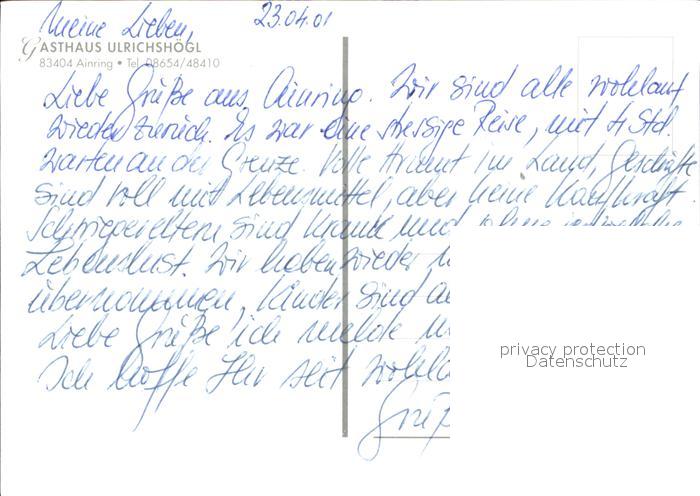 Meine Lieben, 23.04.01
GASTHAUS ULRICHSHÖGL
83404 Ainring • Tel. 08654/48410
Liebe Grüße aus Ainring. Wir sind alle wohlauf
wieder zurück. Es war eine stressige Reise, mit 4 Std.
warten an der Grenze. Volle Armut im Land, Geschäfte
sind voll mit Lebensmittel aber keine Kaufkraft.
Schwiegereltern sind krank und ohne
Lebenslust. Wir haben wieder
übernommen, Kinder sind
Liebe Grüße ich melde
Ich hoffe Ihr seit
privacy protection
Datenschutz